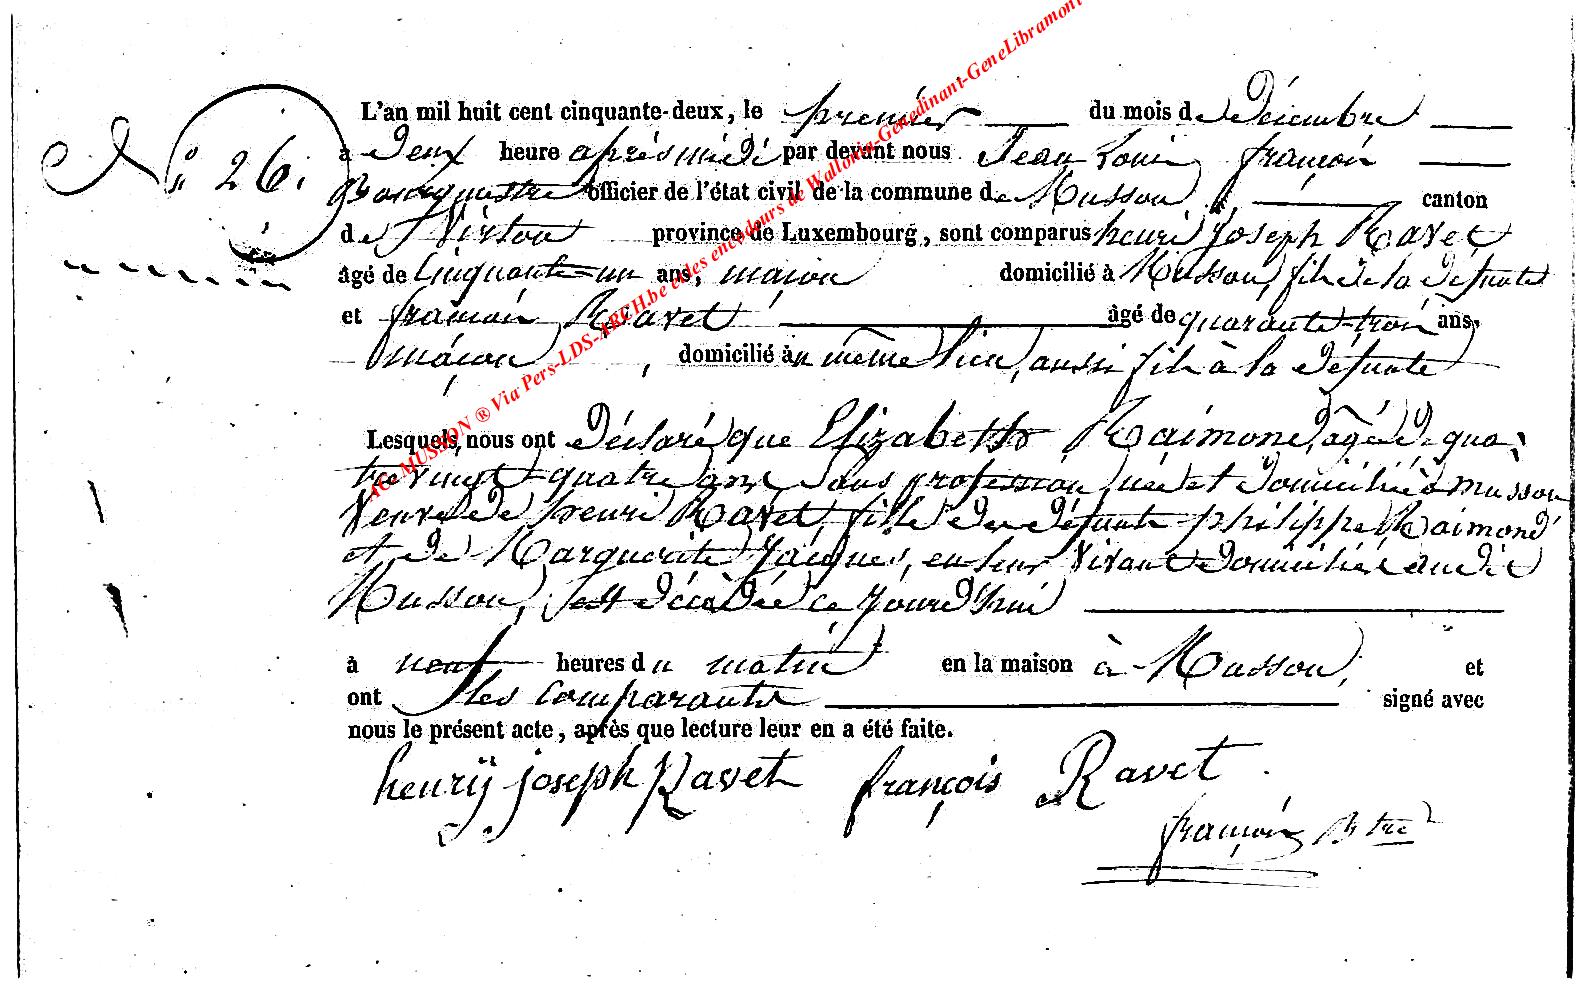 N° 26.
L'an mil huit cent cinquante-deux, le premier du mois de Décembre
à Deux heure après midi par devant nous Jean Louis françois
Bourgmestre officier de l'état civil de la commune de Musson, canton
de Virton province de Luxembourg, sont comparus henri Joseph Ravet
âgé de Cinquante-un ans, maçon domicilié à Musson, fils de la défunte
et françois Ravet âgé de quarante-trois ans,
maçon, domicilié au même lieu, aussi fils à la défunte
Lesquels nous ont Déclaré que Elizabeth Raimond, agée de qua-
tre vingt quatre ans sans profession, née et Domiciliée à Musson
Veuve de henri Ravet, fille des défunts philippe Raimond
et de Marguerite Jacques, en leur Vivant Domiciliés audit
Musson, est décédée ce Jourd'hui
à neuf heures du matin en la maison à Musson, et
ont les comparants signé avec
nous le présent acte, après que lecture leur en a été faite.
henrÿ joseph Ravet françois Ravet.
françois Btre
AC MUSSON ® Via Pers-LDS-ARCH.be et les encodeurs de Wallonia-Genedinant-GeneLibramont